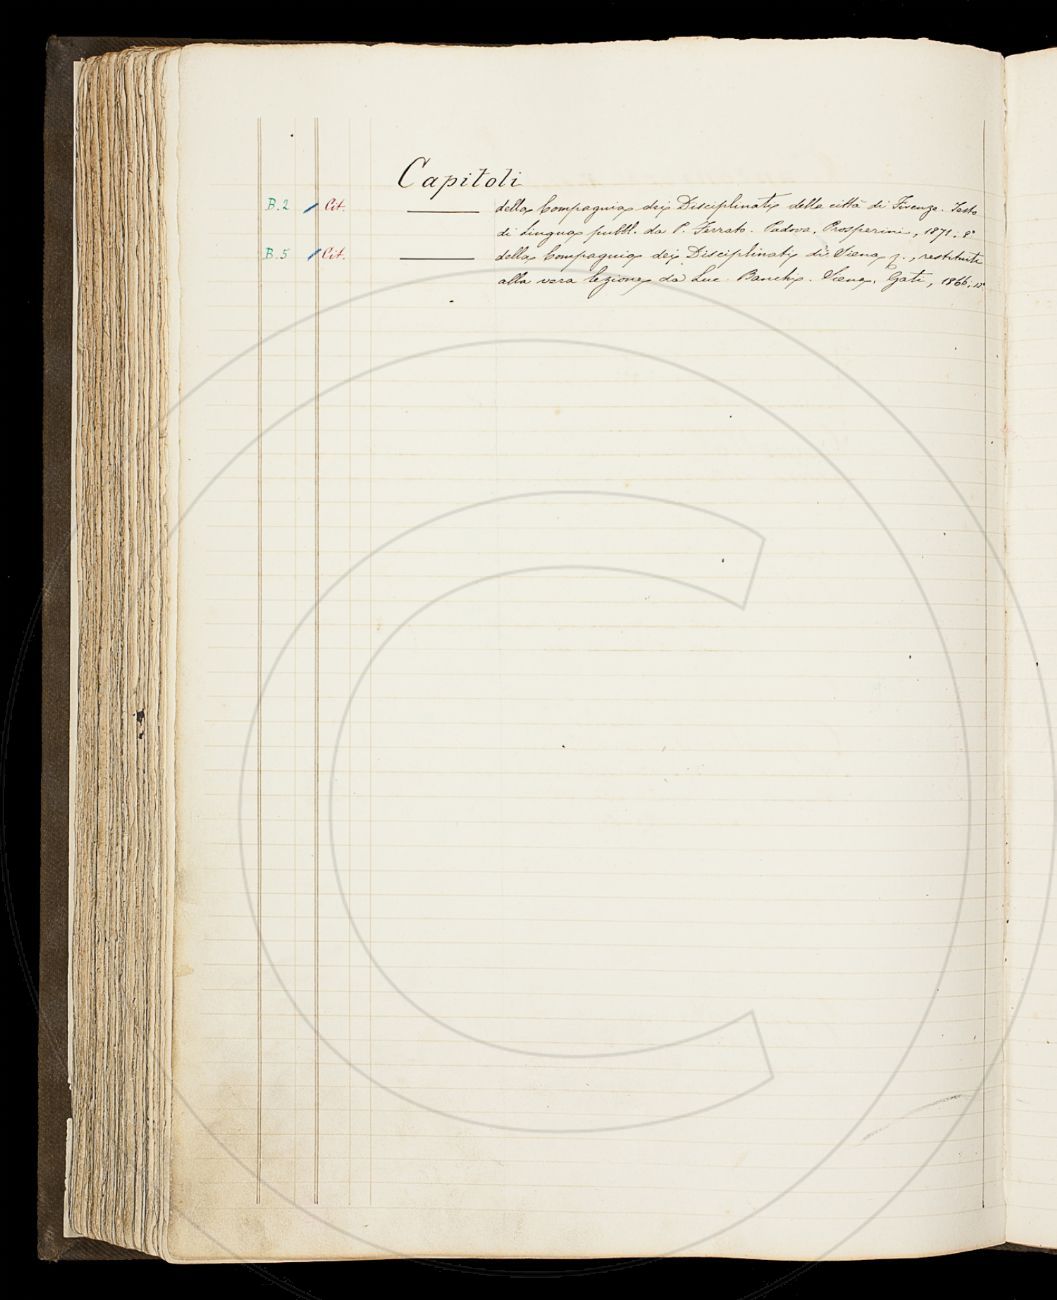 Capitoli
B.2 Cit. della Compagnia dei Disciplinati della città di Firenze. Testo
di Lingua pubbl. da P. Ferrato. Padova, Prosperini, 1871. 8°
B.5 Cit. della Compagnia dei Disciplinati di Siena, restituiti
alla vera lezione da Luc. Banchi. Siena, Gati, 1866.